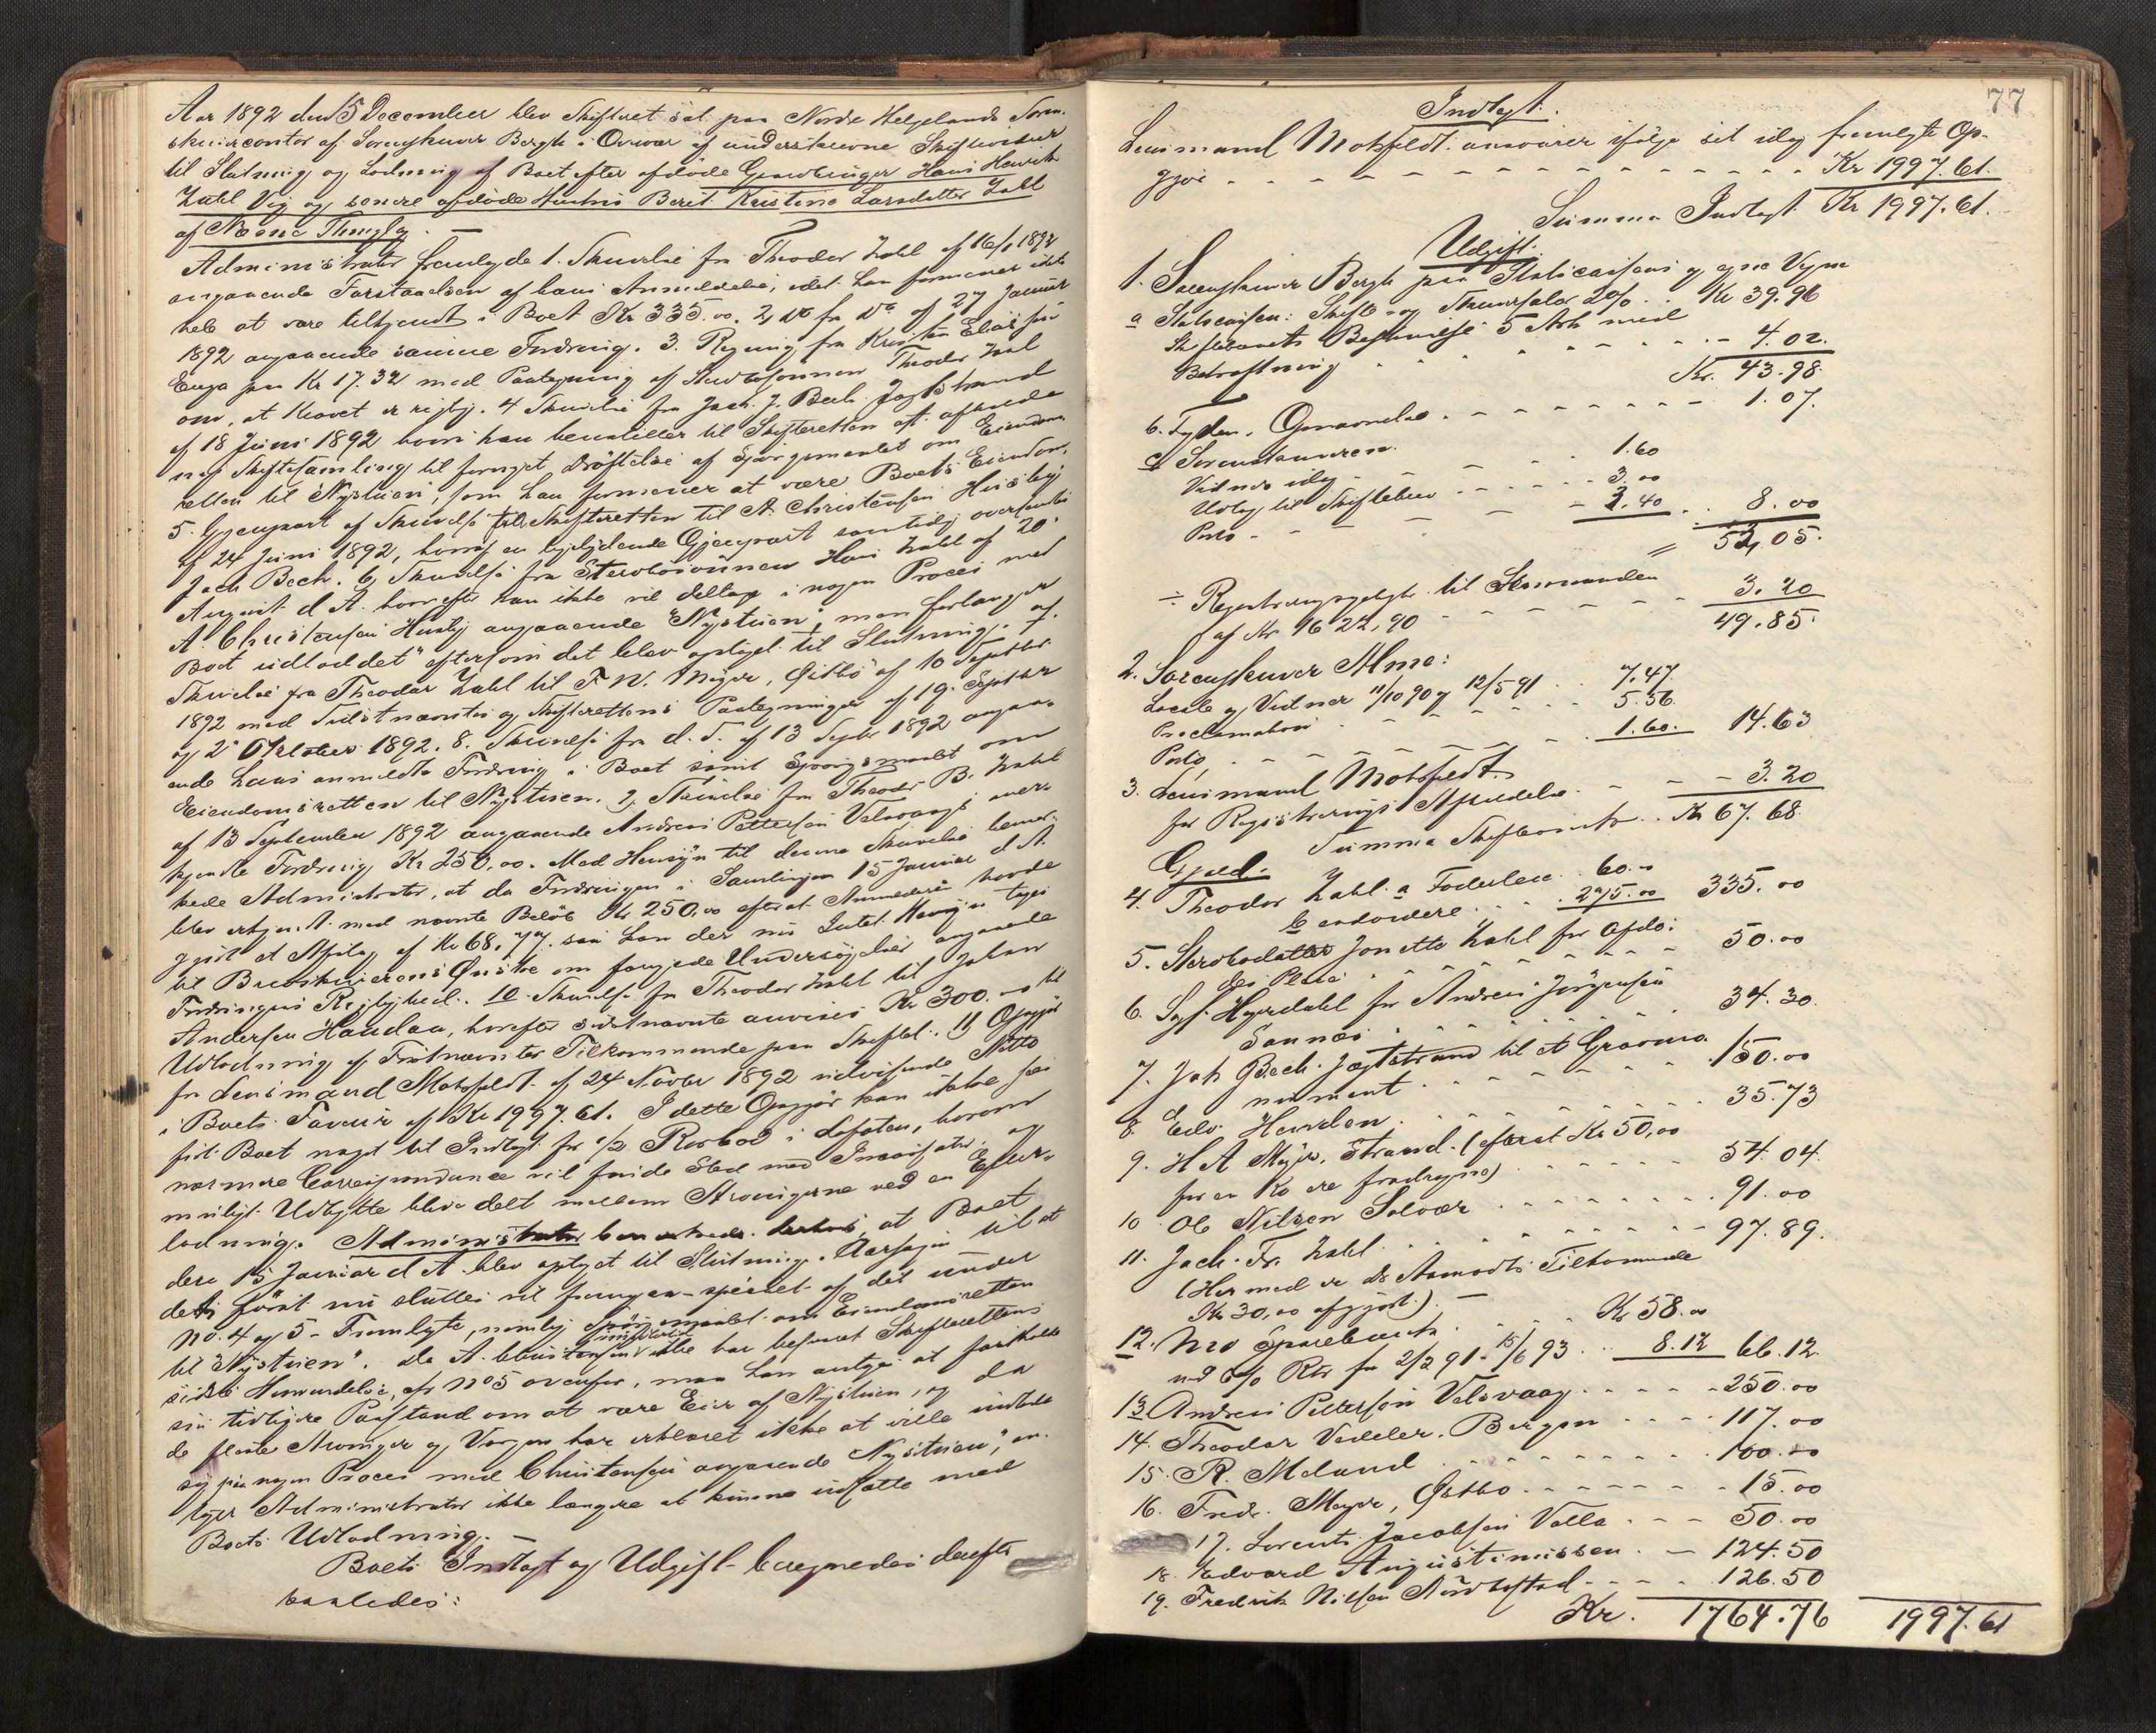 Aar 1892 den 15 December blev Skifteret sat paa Nordre Helgelands Soren-
skrivercontor af Sorenskriver Bergh i Overvær af underskrevne Skiftevidner
til Slutning og Lodning af Boet efter afdøde Gaardbruger Hans Henrik
Zahl Vig og senere afdøde Hustru Berit Kristine Larsdatter Zahl
af Næsne Thinglag. —
Administrator fremlagde 1. Skrivelse fra Theodor Zahl af 16/1 1892
angaaende Forstaaelsen af hans Anmeldelse, idet han formener ikke
hele at være tilkjendt i Boet Kr 335.00. 2, do fra do af 27 Januar
1892 angaaende samme Fordring. 3. Regning fra Kristen Eliassen
Enga paa Kr 17.32 med Paategning af Sterbosønnen Theodor Zahl
om, at Kravet er rigtig. 4 Skrivelse fra Jach. J. Bech Jægtstrand
af 18 Juni 1892 hvori han henstiller til Skifteretten at afholde
ny Skiftesamling til fornyet Drøftelse af Spørgsmaalet om Eiendoms-
retten til "Nystuen", som han formener at være Boets Eiendom.
5. Gjenpart af Skrivelse fra Skifteretten til A. Christensen Husby
af 24 Juni 1892, hvoraf en ligelydende Gjenpart samtidig oversendtes
Jach Bech. 6, Skrivelse fra Sterbosønnen Hans Zahl af 20
August d A. hvorefter han ikke vil deltage i nogen Proces med
A. Christensen Husby angaaende "Nystuen", men forlanger
Boet udloddet efterson det blev optaget til Slutning. 7.
Skrivelse fra Theodor Zahl til F W. Meyer, Østbø af 10 Septbr
1892 med Sidstnævntes og Skifterettens Paategninger af 19. Septbr
og 2 Oktober 1892. 8. Skrivelse fra d. S. af 13 Septbr 1892 angaa-
ende hans anmeldte Fordring i Boet samt Spørgsmaalet om
Eiendomsretten til Nystuen. 9, Skrivelse fra Theodor B. Zahl
af 13 September 1892 angaaende Andreas Pettersen Valsvaags aner-
kjendte Fordring Kr 250,00. Med Hensyn til denne Skrivelse bemær-
kede Administrator, at da Fordringen i Samlingen 15 Januar d A.
blev erkjendt med nævnte Beløb Kr 250,00 efterat Anmelderen havde
gjort et Afslag af Kr 68.77 saa kan der nu Intet Hensyn tages
til Brevskriverens Ønske om fornyede Undersøgelser angaaende
Fordringens Rigtighed. 10 Skrivelse fra Theodor Zahl til Johan
Andersen Handaa, hvorefter sidstnævnte anvises Kr 300.00 til
Udlodning af Førstnævntes Tilkommende paa Skiftet. 11 Opgjør
fra Lensmand Motzfeldt af 24 Novbr 1892 udvisende Netto
i Boets Faveur af Kr 1997.61. I dette Opgjør kan ikke sees
ført Boet noget til Indtægt for 1/2 Rorbod i Lofoten, hvorom
nærmere Correspondance vil finde Sted med Incassator, og
muligt Udbytte blive delt mellem Arvingerne ved en Efter-
lodning. Administrator bemærkede derhos, at Boet
den 15 Januar d A. blev optaget til Slutning. Aarsagen til at
det først nu sluttes vil fremgaa specielt af det under
No. 4 og 5 Fremlagte, nemlig Spørgsmaalet om Eiendomsretten
til "Nystuen". Da A. Christensen ikke har besvaret Skifterettens
sidste Henvendelse, cfr No 5 ovenfor, maa han antages at fastholde
sin tidligere Paastand om at være Eier af Nystuen, og da
de fleste Arvinger og Værgen har erklæret ikke at ville indlade
sig paa nogen Proces med Christensen angaaende "Nystuen", an-
tager Administrator ikke længere at kunne udsætte med
Boets Udlodning. —
Boets Indtægt og Udgift beregnedes derefter
saaledes:
77
Indtægt.
Lensmand Motzfeldt ansvarer ifølge sit idag fremlagte Op-
gjør - - - - Kr 1997.61.
Summa Indtægt Kr 1997.61.
Udgift.
1. Sorenskriver Bergh paa Statscassens og egne Vegne
a Statscassen: Skifte- og Skriversalær 2% . . Kr 39.96
Skiftebrevets Beskrivelse 5 Ark med
Bekræftning - - - 4.02.
Kr. 43.98
b. Fogden, Gjennemsete - - - 1.07.
c Sorenskriveren.
Vidner idag - - 1.60
Udlæg til Skiftebrev - - - 3.00
Porto - - 3.40 . . 8.00
" 53,05.
÷ Registreringsgebyr til Lensmanden
af Kr 1622,90 - - - 3.20
49.85.
2. Sorenskriver Alme:
Locale og Vidner 11/10 90 og 12/5 91 . . 7.47.
Proclamation - - - 5.56.
Porto - - - 1.60. 14.63
3. Lensmand Motzfeldt
for Registrerings Afholdelse - - - 3.20
Summa Skifteomk. . . Kr 67.68.
Gjæld.
4. Theodor Zahl a Foderløn . . 60.00
b endvidere . . . 275.00 335.00
5. Sterbodatter Jonette Zahl for Afdø-
des Pleie - - - 50.00
6. Sigf. Hagerdahl for Andreas Jørgensen
Sannes - - - 34.30.
7. Joh Bech Jægtstrand til et Gravmo-
nument - - - 150.00
8. Edv. Hemden. - - - 35.73
9. H A Meyer, Strand (efterat Kr 50,00
for en Ko ere fradragne) - - - 54.04.
10 Ole Nilsen Solvær - - - 91.00
11. Jach. Fr. Zahl - - - 97.89.
(Hermed er Ds Aamodts Tilkommende
Kr 30,00 afgjort.) —
12. Mro Sparebank . . Kr 58.00
med 6% Rtr fra 2/2 91 - 15/6 93 . . 8.12 66.12.
13 Andreas Pettersen Valsvaag - - - 250.00
14. Theodor Vedeler. Bergen - - - 117.00
15. R. Meland - - - 100.00
16. Fredr. Meyer, Østbø - - - 15.00
17. Lorents Jacobsen Valla - - - 50.00
18. Edvard Augustinussen - - 124.50
19. Fredrik Nilsen - - - 126.50
Kr. 1764.76 1997.61